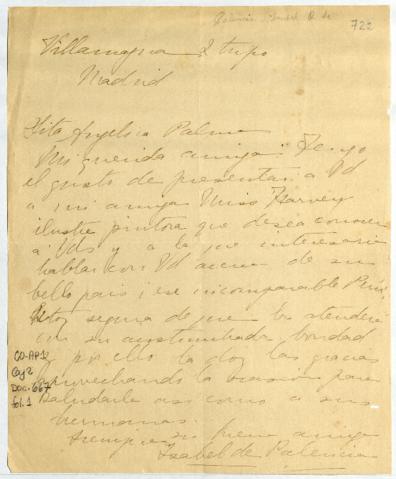 722
Villamagna 2 trip
Madrid
Srta Angelica Palma
Mi querida amiga: Tengo
el gusto de presentar a Vd
a mi amiga Miss Harvey
ilustre pintora que desea conocer
a Vds y a la que interesaria
hablar con Vd acerca de su
bello pais ¡ese incomparable Perú!
Estoy segura de que la atenderá
con su acostumbrada bondad
y por ello la doy las gracias
aprovechando la ocasion para
saludarla asi como a sus
hermanas.
Siempre su buena amiga
Isabel de Palencia
CO-AP12
Caj 2
Doc. 667
fol. 1